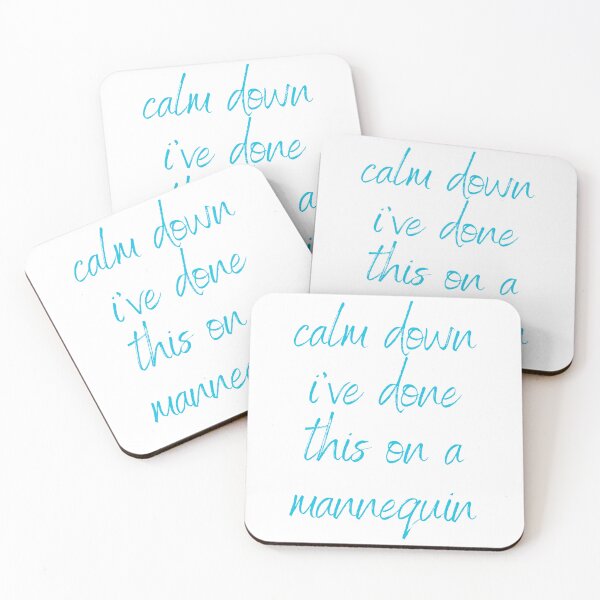 calm down
i've done
a
calm down
i've done
this on a
calm down
i've done
this on
manne
calm down
i've done
this on a
mannequin